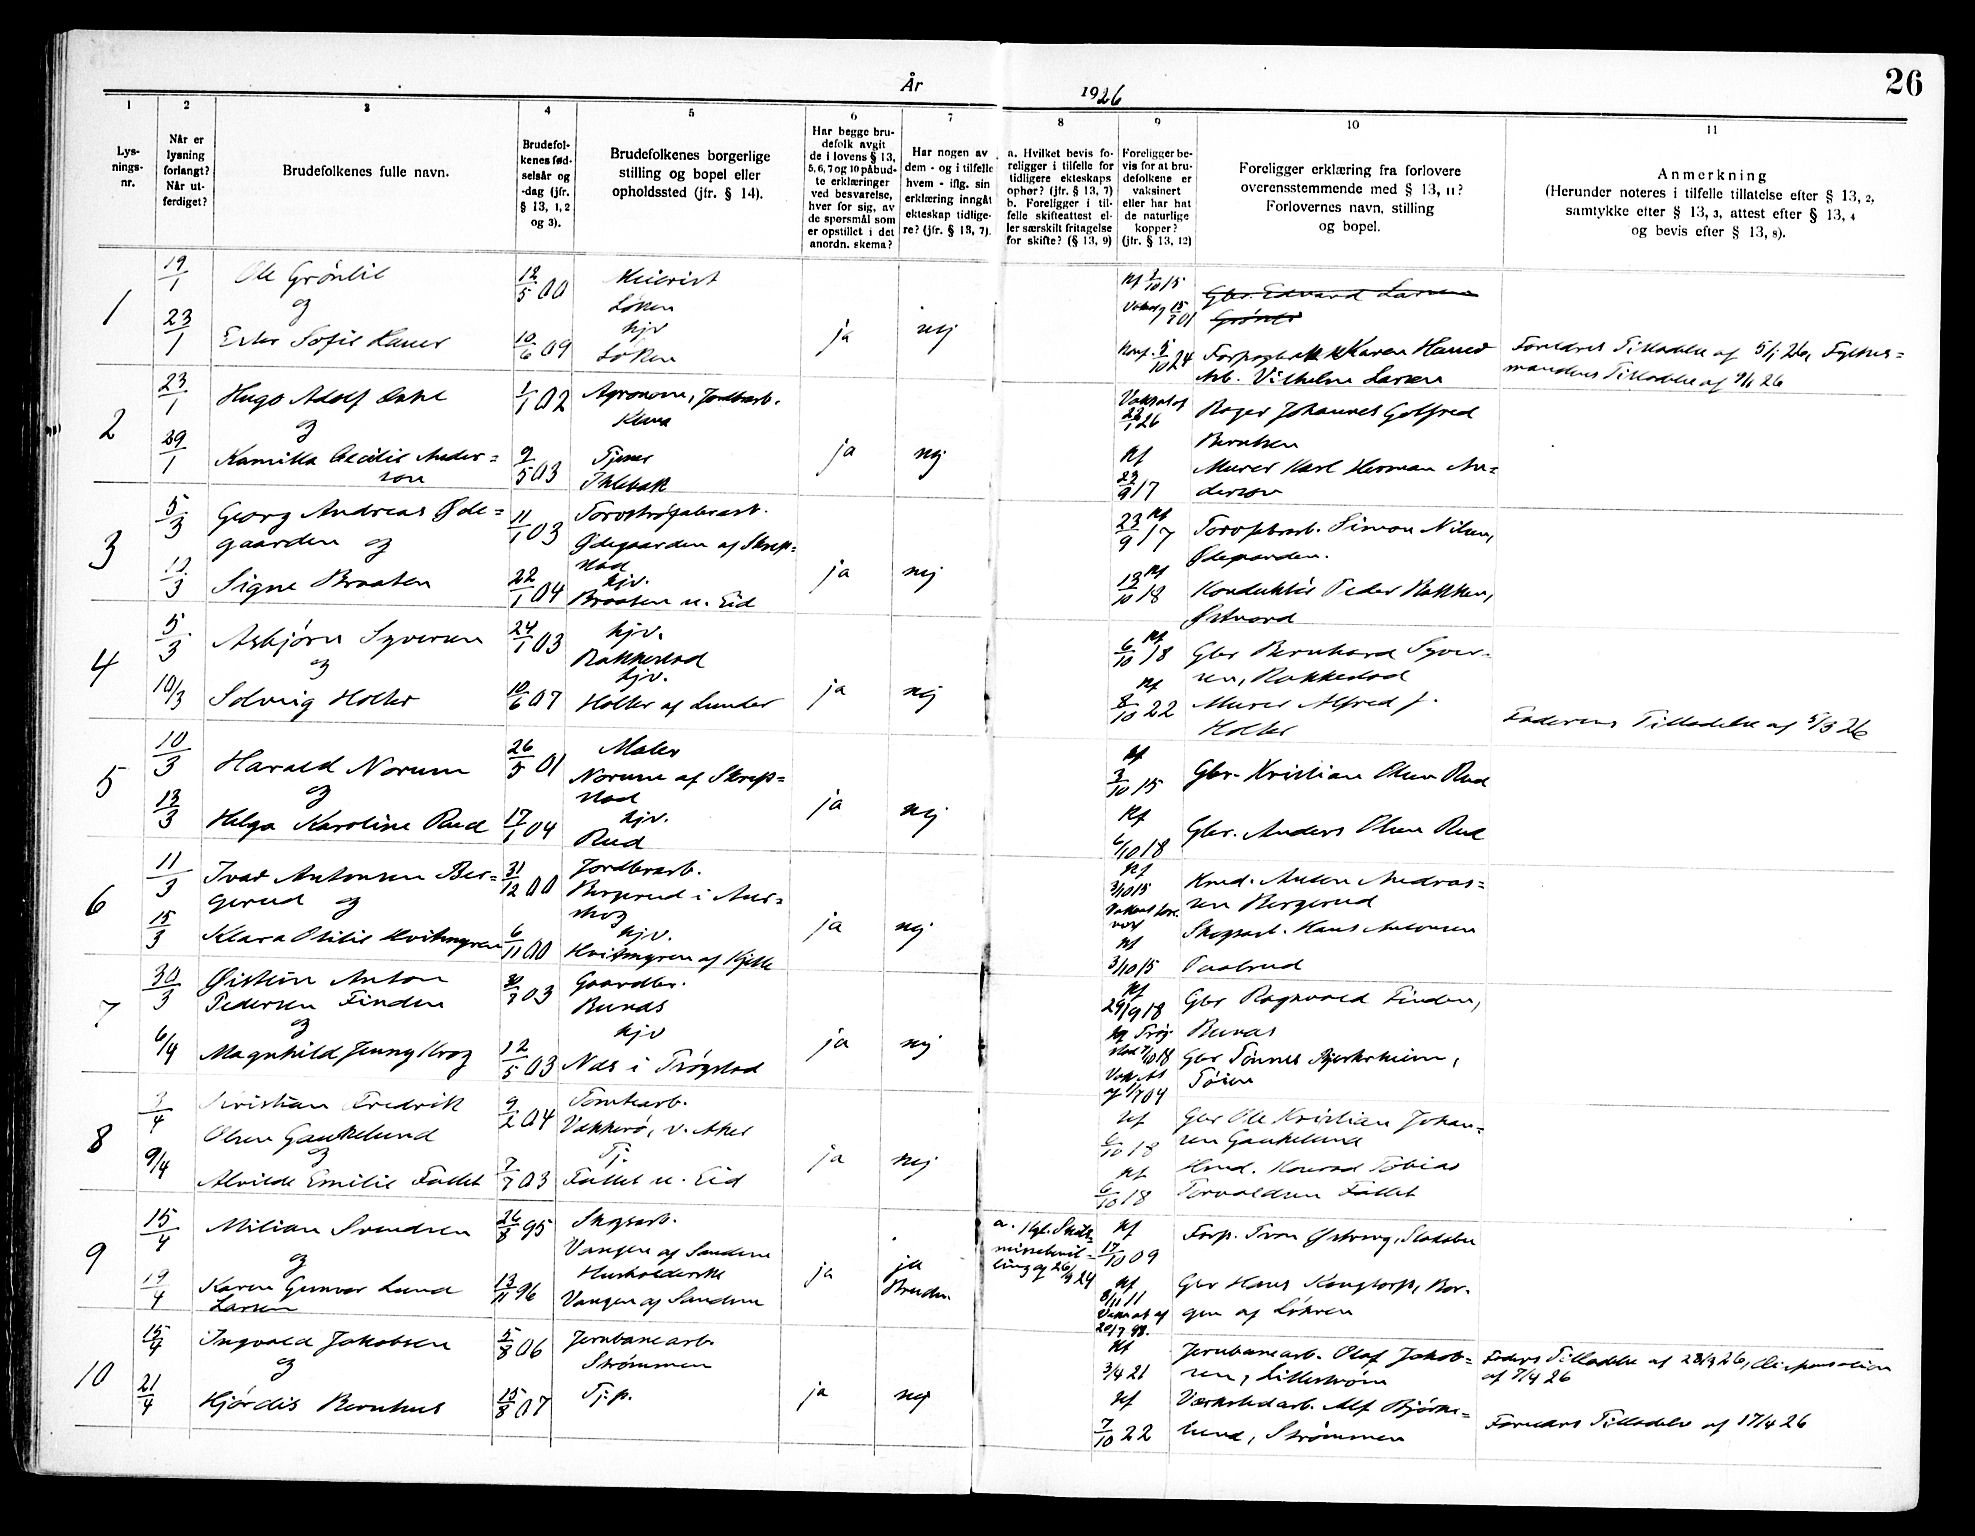 26
År 1926
1
2
3
4
5
6
7
8
9
10
11
Lys-
nings-
nr.
Når er
lysning
forlangt?
Når ut-
ferdiget?
Brudefolkenes fulle navn.
Brudefol-
kenes fød-
selsår og
-dag (jfr.
§ 13, 1, 2
og 3).
Brudefolkenes borgerlige
stilling og bopel eller
opholdssted (jfr. § 14).
Har begge bru-
defolk avgit
de i lovens § 13,
5, 6, 7 og 10 påbud-
te erklæringer
ved besvarelse,
hver for sig, av
de spørsmål som
er opstillet i det
anordn. skema?
Har nogen av
dem - og i tilfelle
hvem - iflg. sin
erklæring inngåt
ekteskap tidlige-
re? (jfr. § 13, 7).
a. Hvilket bevis fo-
religger i tilfelle for
tidligere ekteskaps
ophør? (jfr. § 13, 7)
b. Foreligger i til-
felle skifteattest el-
ler særskilt fritagelse
for skifte? (§ 13, 9)
Foreligger be-
vis for at bru-
defolkene er
vaksinert
eller har hat
de naturlige
kopper?
(jfr. § 13, 12)
Foreligger erklæring fra forlovere
overensstemmende med § 13, 11?
Forlovernes navn, stilling
og bopel.
Anmerkning
(Herunder noteres i tilfelle tillatelse efter § 13, 2,
samtykke efter § 13, 3, attest efter § 13, 4
og bevis efter § 13, 8).
1
19/1
23/1
Ole Grønlil
og
Ester Sofie Hauer
12/5 00
10/6 09
Meierist
Løken
hjv
Løken
ja
nej
Gbr. Edvard Larsen
Arb. Vilhelm Larsen
Foreldres Tilladelse af 5/1 26, Fylkes-
mandens Tilladelse af 9/1 26
2
23/1
29/1
Hugo Adolf
og
Kamilla Cecilie Ander-
son
1/1 02
9/5 03
Agronom, Jordbarb.
Tjener
Ihlebæk
ja
nej
Roger Johannes Gotfred
Berntsen
Murer Karl Herman An-
derson
3
5/3
12/3
Georg Andreas Øde-
gaarden og
Signe Braaten
11/1 03
22/1 04
Torvstrøfabrarb.
Ødegaarden af Skrep-
stad
hjv.
Braaten u. Eid
ja
nej
23/9 17 Kf
Torvfabrarb. Simon Nilsen,
Ødegaarden.
13/10 18 Kf
Konduktør Peder Bakken,
4
5/3
10/3
Asbjørn Syversen
og
Solveig Holter
24/1 03
10/6 07
hjv.
Rakkestad
hjv.
Holter af Lunder
ja
nej
6/10 18 Kf
Gbr Bernhard Syver-
sen, Rakkestad
Kf
8/10 22
Murer Alfred J.
Holter
Faderens Tilladelse af 5/3 26
5
10/3
13/3
Harald Norum
og
Helga Karoline Rud
26/5 01
17/1 04
Maler
Norum af Skrep-
stad
hjv.
Rud
ja
nej
Kf
3/10 15
Gbr. Kristian Olsen Rud
Kf
6/10 18
Gbr. Anders Olsen Rud
6
11/3
15/3
Ivar Antonsen Ber-
gerud og
Klara Otilie Hvitmyren
31/12 00
6/11 00
Jordbrarb.
Bergerud i Aur-
skog
hjv.
Hvitmyren af Kjelle
ja
nej
Kf
3/10 15
Kf
3/10 15
Kmd. Anton Andreas-
sen Bergerud
Skogsarb. Hans Antonsen
Paalrud
7
30/3
6/4
Øistein Anton
Pedersen Finden
og
Magnhild Jenny Krog
30/7 03
12/5 03
Gaardbr.
Bunæs
hjv
Næs i Trøgstad
ja
nej
Kf
29/9 18
Gbr Ragnvald Finden,
Bunæs
Gbr Tønnes Bjerkeheim,
Tøien
8
3/4
9/4
Kristian Fredrik
Olsen Gaukelund
og
Alvilde Emilie Fallet
9/2 04
7/7 03
Tomtearb.
Vækkerø, v. Aker
Tj.
Fallet u. Eid
ja
nej
Kf
6/10 18
Kf
6/10 18
Gbr Ole Kristian Johan-
sen Gaukelund
Hmd. Konrad Tobias
Torvaldsen Fallet
9
15/4
19/4
Milian Svendsen
og
Karen Gunvor Lund
Larsen
26/8 95
13/11 96
Skogsarb.
Vangen af Sandem
Husholderske
Vangen af Sandem
ja
ja
Bruden
a. Kgl. Skils-
missebevil-
ling af 26/9 24
Kf
17/10 09
Kf
8/11 11
Vakc at af
20/7 98.
Gbr Hans Kongtorp, Bor-
gen af Løkren
10
15/4
21/4
Ingvald Jakobsen
og
Hjørdis Bernhus
5/8 06
15/8 07
Jernbanearb.
Strømmen
Tj.p.
ja
nej
Kf
3/4 21
Kf
7/10 22
Jernbanearb. Olaf Jakob-
sen, Lillestrøm
Værkstedarb. Alf Bjørke-
lund, Strømmen
Faders Tilladelse af 28/3 26, Dispensation
af 7/4 26
Foreldres Tilladelse af 17/4 26